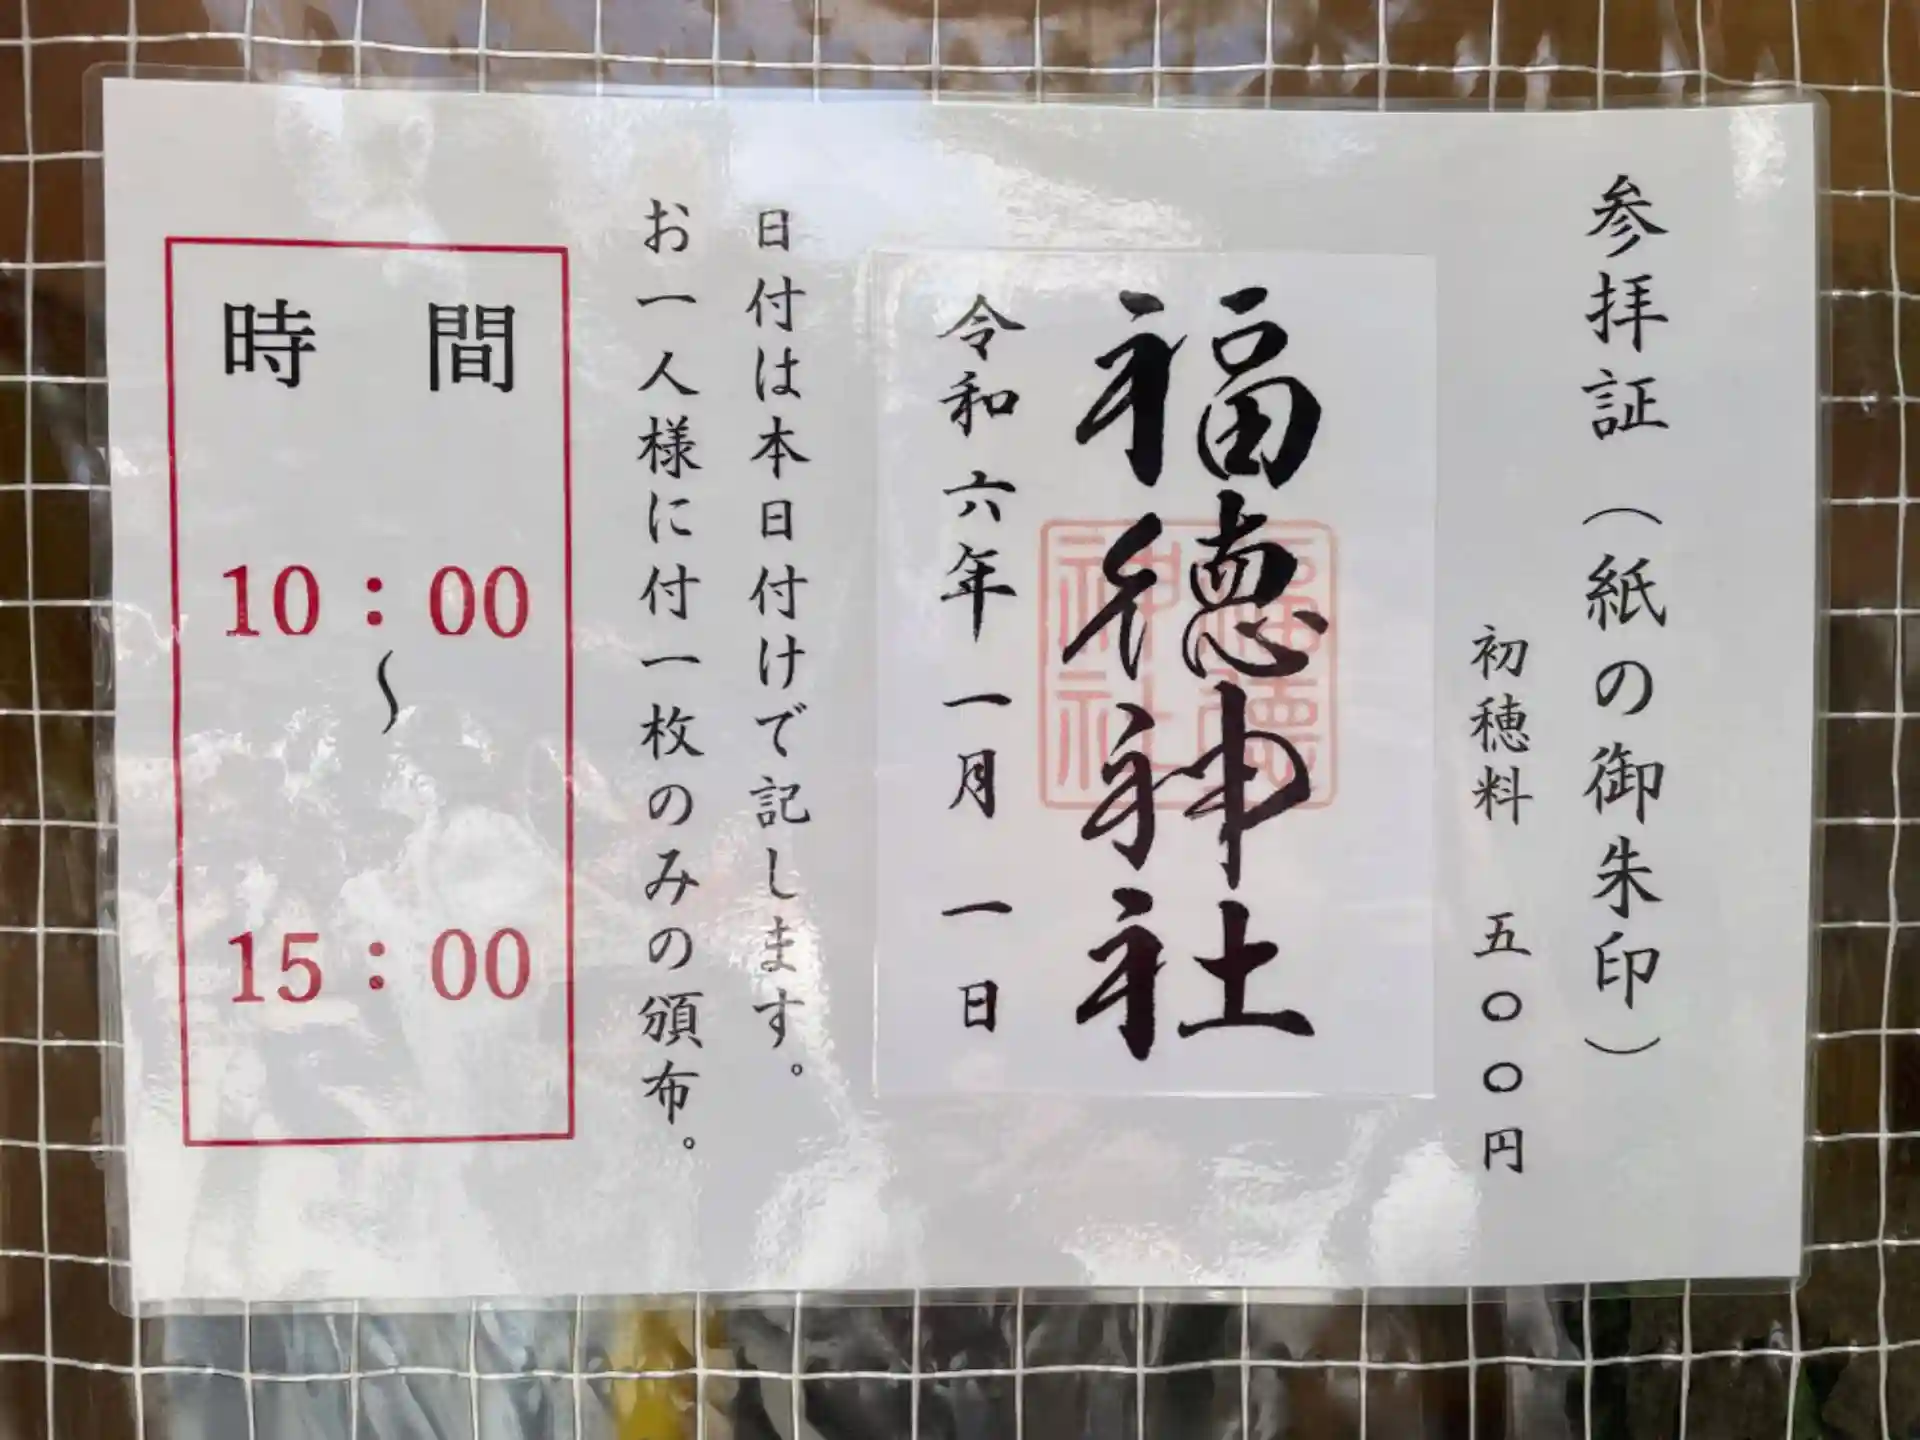 参拝証（紙の御朱印）
初穂料 五〇〇円
福徳神社
福徳
神社
令和六年一月一日
日付は本日付けで記します。
お一人様に付一枚のみの頒布。
時 間
10：00
〜
15：00